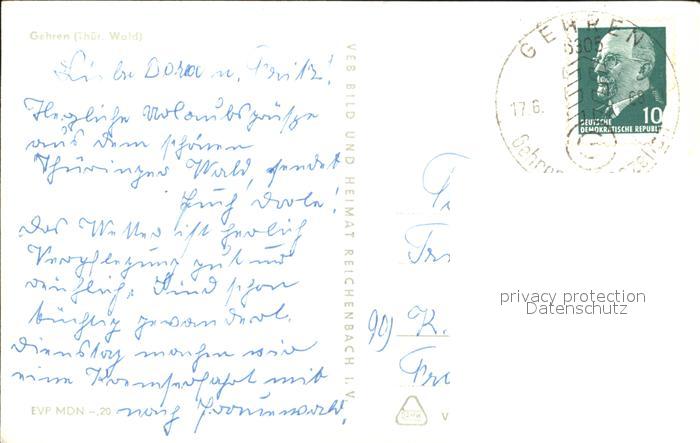 Gehren (Thür. Wald)
Liebe Dora u. Fritz!
Herzliche Urlaubsgrüße
aus dem schönen
Thüringer Wald, sendet
Euch
Das Wetter ist herrlich
Verpflegung gut und
reichlich. Sind schon
tüchtig gewandert.
Dienstag machen wir
eine Kremserfahrt mit
nach
EVP MDN -,20
VEB BILD UND HEIMAT REICHENBACH I. V.
GEHREN
6305
17.6.
69
Gehren
10
DEUTSCHE
DEMOKRATISCHE REPUBL
Fr
90) K.
privacy protection
Datenschutz
V